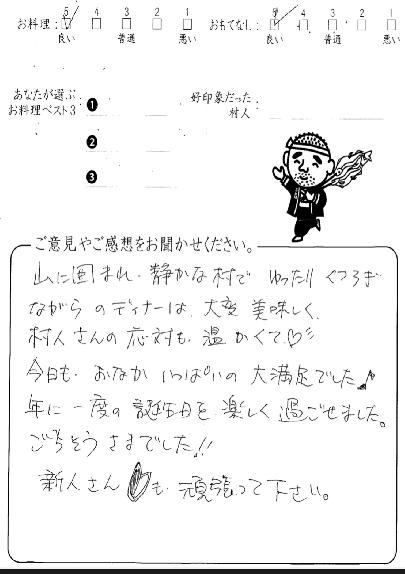 5 4 3 2 1
お料理: □ □ □ □ □
良い 普通 悪い
5 4 3 2 1
おもてなし: □ □ □ □ □
良い 普通 悪い
あなたが選ぶ
お料理ベスト3
❶
❷
❸
好印象だった
村人
ご意見やご感想をお聞かせください。
山に囲まれ、静かな村で ゆったり くつろぎ
ながら のディナーは、大変 美味しく、
村人さんの 応対も、温かくて♡
今日も、おなか いっぱいの 大満足でした♪
年に一度の 誕生日を 楽しく 過ごせました。
ごちそうさまでした!!
新人さん も、頑張って下さい。